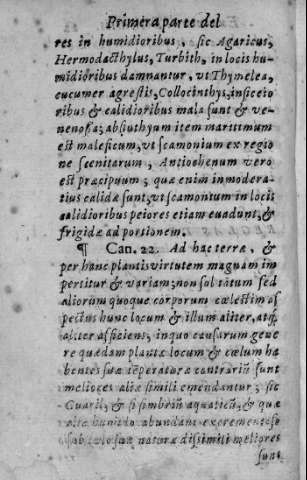 Primera parte del
res in humidioribus, sic Agaricus,
Hermodacthylus, Turbith, in locis hu-
midioribus damnantur, vt Thymelea,
cucumer agrestis, Collocinthys, in siccio
ribus & calidioribus mala sunt & ve-
nenosa; absinthyum item marittmum
est maleficum, vt scamonium ex regio
ne scenitarum, Antiochenum vero
est præcipuum; quæ enim inmodera-
tius calida sunt, vt scamonium in locis
calidioribus peiores etiam euadunt, &
frigida ad portionem.
¶ Can. 22. Ad hæc terra, &
per hanc plantis virtutem magnam im
pertitur & variam; non sol tātum sed
aliorum quoque corporum cælestim as
pectus hunc locum & illum aliter, atq;
aliter afficiens, in quo causarum gene
re quædam plantæ locum & cælum ha
bentes suæ tēperaturæ contrariū sunt
meliores aliæ simili emendantur; sic
& si simbriū aquaticū, & quæ
alia humido abundant excrementoso
sub cælo suæ naturæ dissimili meliores
sunt